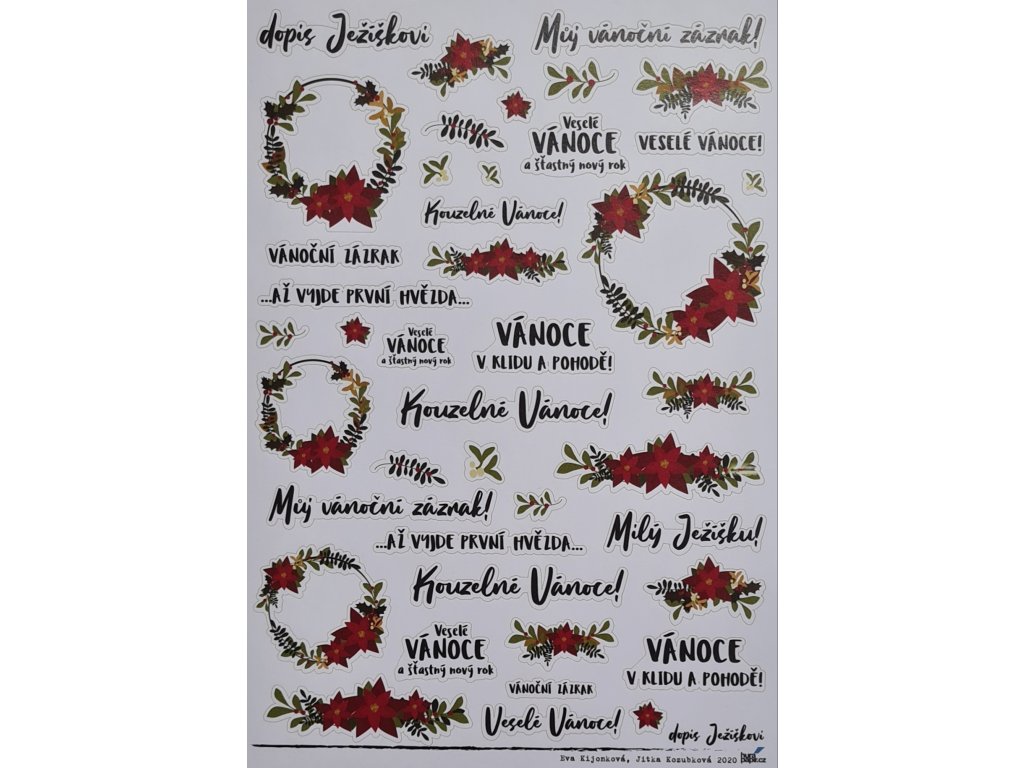 dopis Ježíškovi
Můj vánoční zázrak!
Veselé
VÁNOCE
a šťastný nový rok
VESELÉ VÁNOCE!
Kouzelné Vánoce!
VÁNOČNÍ ZÁZRAK
...AŽ VYJDE PRVNÍ HVĚZDA...
Veselé
VÁNOCE
a šťastný nový rok
VÁNOCE
V KLIDU A POHODĚ!
Kouzelné Vánoce!
Můj vánoční zázrak!
...AŽ VYJDE PRVNÍ HVĚZDA...
Milý Ježíšku!
Kouzelné Vánoce!
Veselé
VÁNOCE
a šťastný nový rok
VÁNOCE
V KLIDU A POHODĚ!
VÁNOČNÍ ZÁZRAK
Veselé Vánoce!
dopis Ježíškovi
Eva Kijonková, Jitka Kozubková 2020